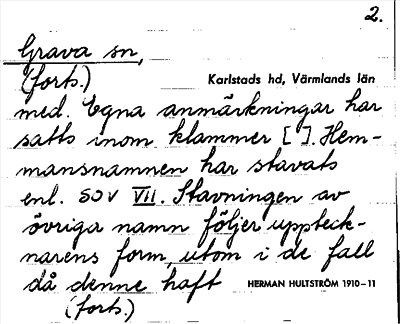 2.
Grava sn,
(forts.) Karlstads hd, Värmlands län
med. Egna anmärkningar har
satts inom klammer [ ]. Hem-
mansnamnen har stavats
enl. SOV VII. Stavningen av
övriga namn följer uppteck-
narens form, utom i de fall
då denne haft HERMAN HULTSTRÖM 1910-11
(forts.)